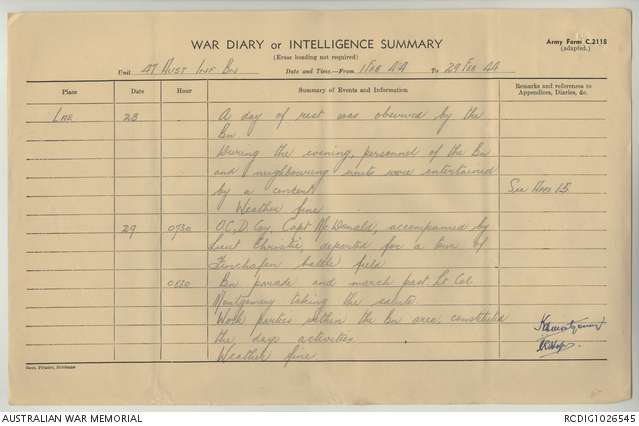 WAR DIARY or INTELLIGENCE SUMMARY
Army Form C.2118
(adapted.)
(Erase heading not required)
Unit 47 Aust Inf Bn Date and Time—From 1 Feb 44 To 29 Feb 44
Place Date Hour Summary of Events and Information Remarks and references to Appendices, Diaries, &c.
LAE 28 A day of rest was observed by the
Bn
During the evening, personnel of the Bn
and neighbouring units were entertained
by a concert See Appx 15
Weather fine
29 0730 O.C. D Coy, Capt McDonald, accompanied by
Lieut Christie, departed for a tour of
Finchafen battle field
0830 Bn parade and march past Lt Col
Montgomery taking the salute
Work parties within the Bn area, constituted
the days activities
Weather fine
Govt. Printer, Brisbane
AUSTRALIAN WAR MEMORIAL
RCDIG1026545